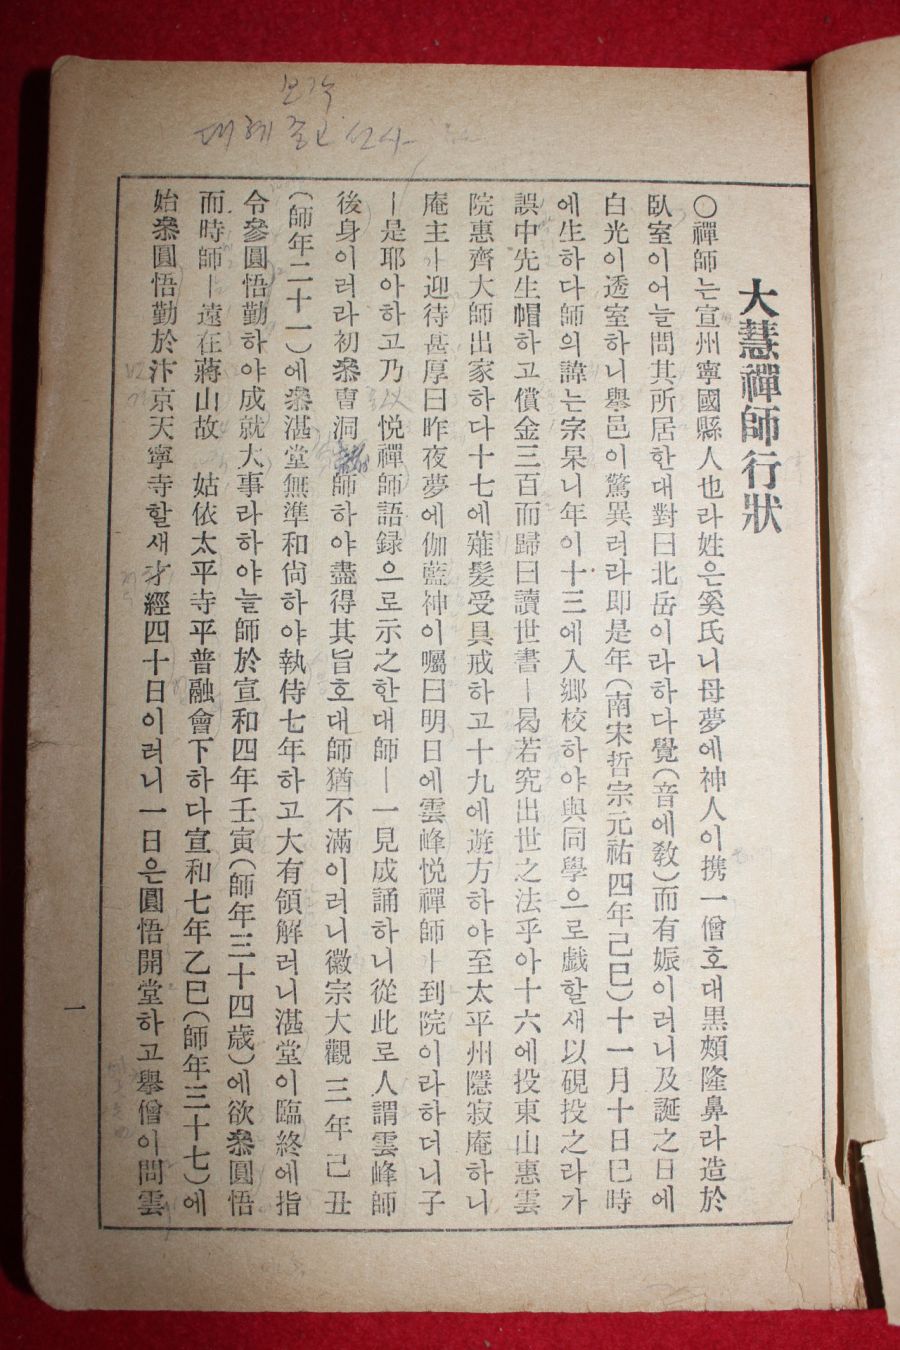 보각
대혜종고선사
大慧禪師行狀
○禪師는宣州寧國縣人也라姓은奚氏니母夢에神人이携一僧호대黑頰隆鼻라造於
臥室이어늘問其所居한대對曰北岳이라하다覺(音에敎)而有娠이러니及誕之日에
白光이透室하니擧邑이驚異러라即是年(南宋哲宗元祐四年己巳)十一月十日巳時
에生하다師의諱는宗杲니年이十三에入鄕校하야與同學으로戱할새以硯投之라가
誤中先生帽하고償金三百而歸曰讀世書ㅣ曷若究出世之法乎아十六에投東山惠雲
院惠齊大師出家하다十七에薙髮受具戒하고十九에遊方하야至太平州隱寂庵하니
庵主ㅏ迎待甚厚曰昨夜夢에伽藍神이囑曰明日에雲峰悅禪師ㅏ到院이라하더니子
ㅣ是耶아하고乃以悅禪師語録으로示之한대師ㅣ一見成誦하니從此로人謂雲峰師
後身이러라初叅曺洞師하야盡得其旨호대師猶不滿이러니徽宗大觀三年己丑
(師年二十一)에叅湛堂無準和尙하야執侍七年하고大有領解러니湛堂이臨終에指
令參圓悟勤하야成就大事라하야늘師於宣和四年壬寅(師年三十四歲)에欲叅圓悟
而時師ㅣ遠在蔣山故 姑依太平寺平普融會下하다宣和七年乙巳(師年三十七)에
始叅圓悟勤於汴京天寧寺할새才經四十日이러니一日은圓悟開堂하고擧僧이問雲
一